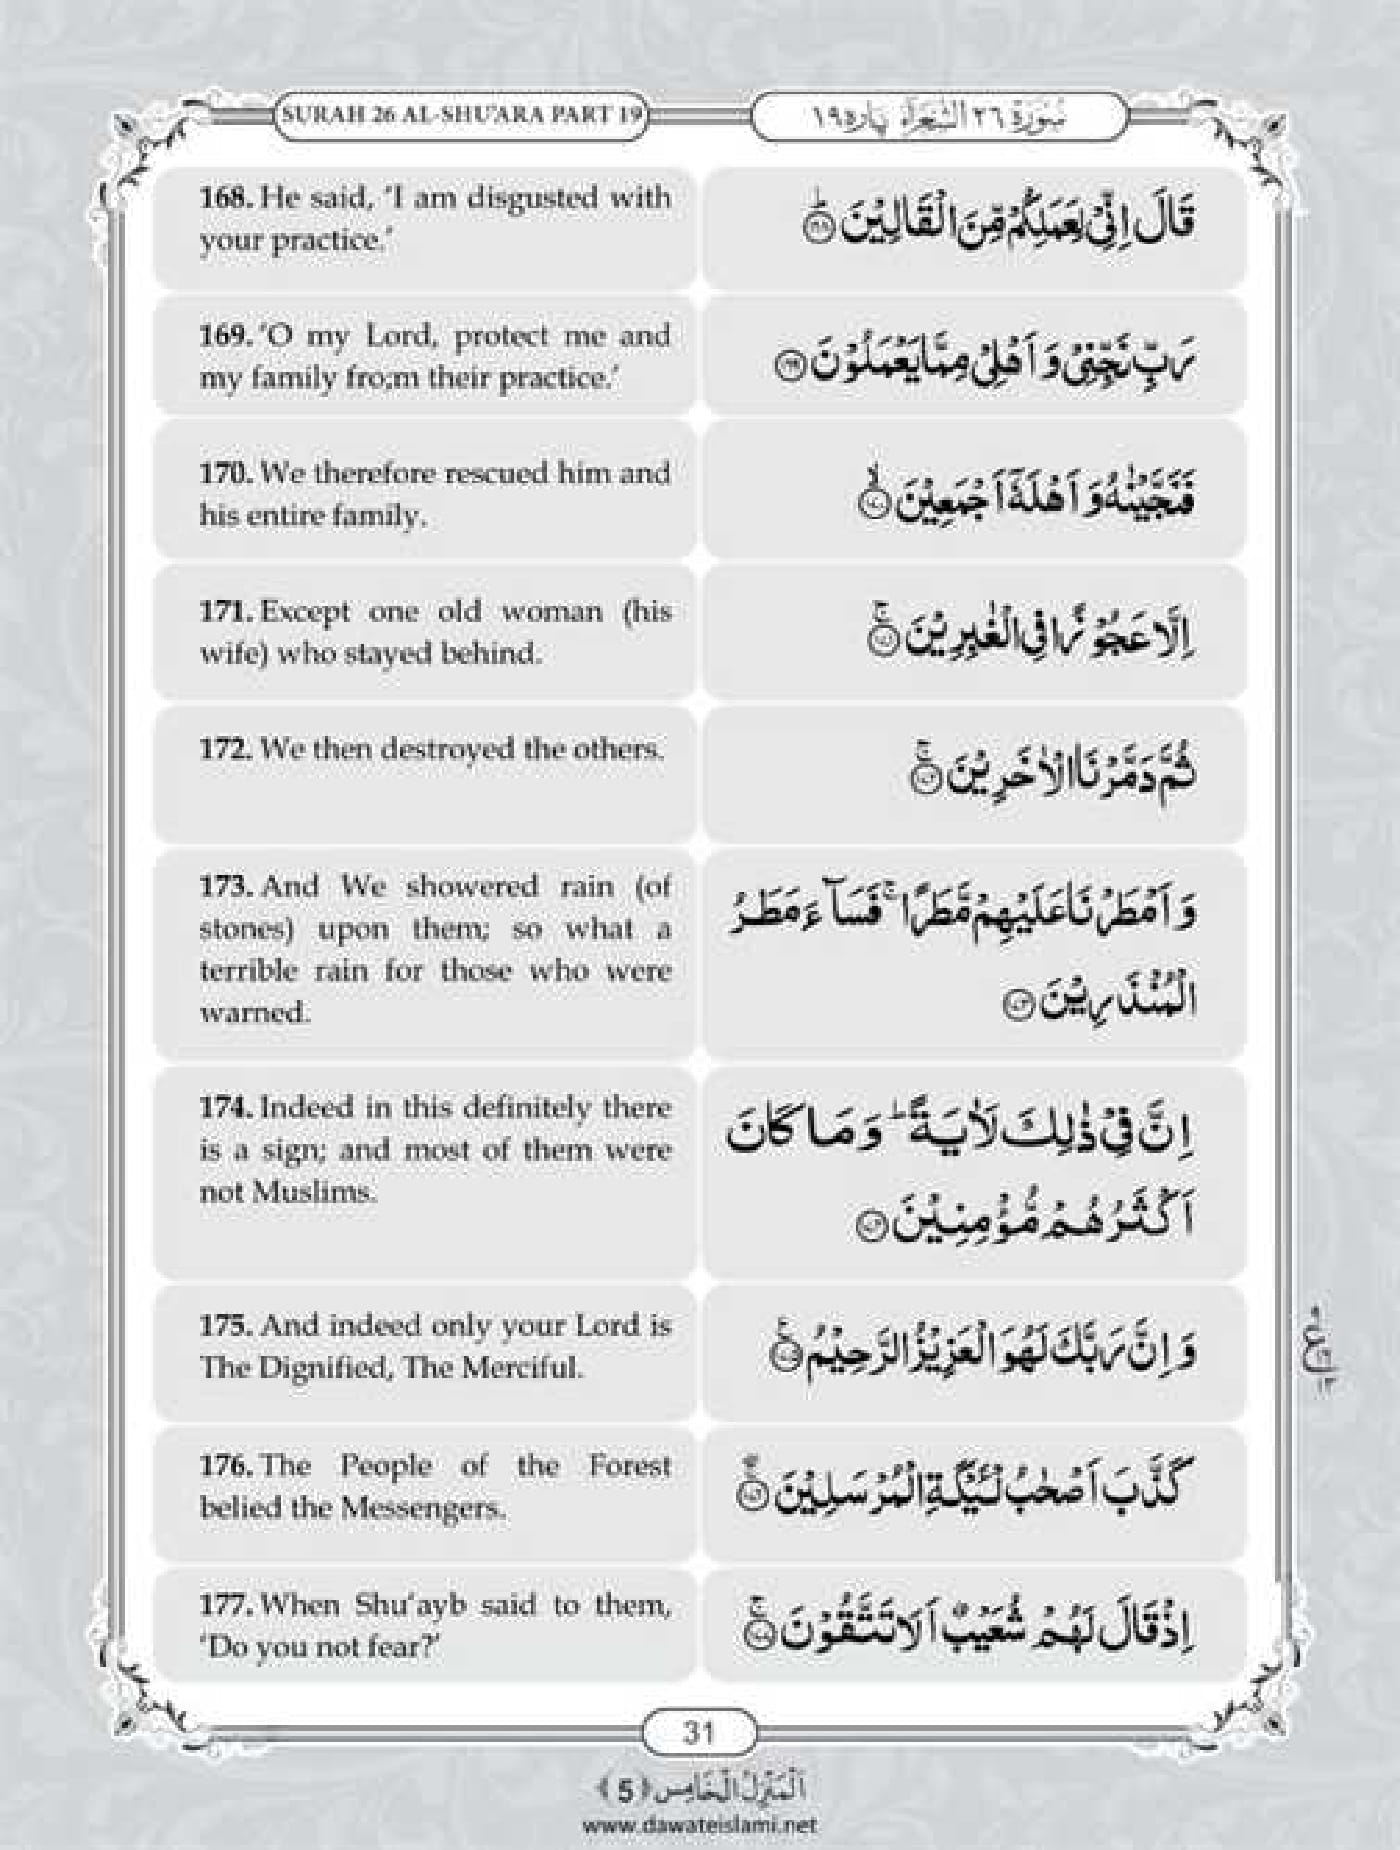 SURAH 26 AL-SHU'ARA PART 19
سُوۡرَةُ ٢٦ الشُّعَرَآء پارہ ١٩
168. He said, ‘I am disgusted with
your practice.’
قَالَ اِنِّیۡ لِعَمَلِكُمۡ مِّنَ الۡقَالِیۡنَ ﴿۱۶۸﴾ؕ
169. ‘O my Lord, protect me and
my family fro;m their practice.’
رَبِّ نَجِّنِیۡ وَ اَهۡلِیۡ مِمَّا یَعۡمَلُوۡنَ ﴿۱۶۹﴾
170. We therefore rescued him and
his entire family.
فَنَجَّیۡنٰهُ وَ اَهۡلَهٗۤ اَجۡمَعِیۡنَ ﴿۱۷۰﴾ۙ
171. Except one old woman (his
wife) who stayed behind.
اِلَّا عَجُوۡزًا فِی الۡغٰبِرِیۡنَ ﴿۱۷۱﴾ۚ
172. We then destroyed the others.
ثُمَّ دَمَّرۡنَا الۡاٰخَرِیۡنَ ﴿۱۷۲﴾ۚ
173. And We showered rain (of
stones) upon them; so what a
terrible rain for those who were
warned.
وَ اَمۡطَرۡنَا عَلَیۡهِمۡ مَّطَرًا ۚ فَسَآءَ مَطَرُ
الۡمُنۡذَرِیۡنَ ﴿۱۷۳﴾
174. Indeed in this definitely there
is a sign; and most of them were
not Muslims.
اِنَّ فِیۡ ذٰلِكَ لَاٰیَةً ؕ وَ مَا كَانَ
اَكۡثَرُهُمۡ مُّؤۡمِنِیۡنَ ﴿۱۷۴﴾
175. And indeed only your Lord is
The Dignified, The Merciful.
وَ اِنَّ رَبَّكَ لَهُوَ الۡعَزِیۡزُ الرَّحِیۡمُ ﴿۱۷۵﴾
176. The People of the Forest
belied the Messengers.
كَذَّبَ اَصۡحٰبُ لۡـَٔیۡكَةِ الۡمُرۡسَلِیۡنَ ﴿۱۷۶﴾
177. When Shu‘ayb said to them,
‘Do you not fear?’
اِذۡ قَالَ لَهُمۡ شُعَیۡبٌ اَلَا تَتَّقُوۡنَ ﴿۱۷۷﴾ۚ
ع
١٣
31
اَلۡمَنۡزِلُ الۡخَامِس ﴿5﴾
www.dawateislami.net